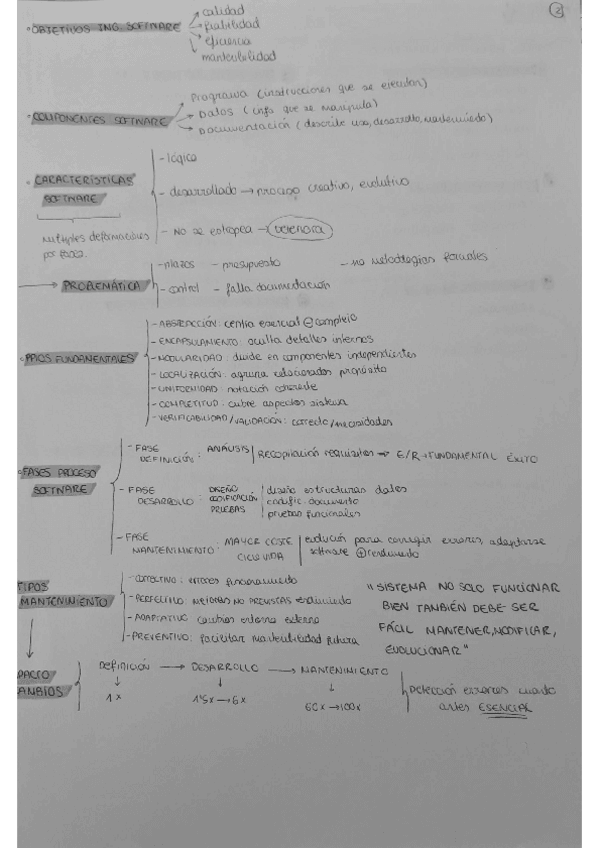 2
· OBJETIVOS ING. SOFTWARE
→ calidad
→ fiabilidad
→ eficiencia
→ mantenibilidad
· COMPONENTES SOFTWARE
→ Programa (instrucciones que se ejecutan)
→ Datos (info que se manipula)
→ Documentación (describe uso, desarrollo, mantenimiento)
· CARACTERÍSTICAS SOFTWARE
Múltiples deformaciones por fases.
- lógico
- desarrollado → proceso creativo, evolutivo
- No se estropea → deteriora
→ PROBLEMÁTICA
- plazos - presupuesto - no metodologías formales
- control - falla documentación
· PPIOS FUNDAMENTALES
- ABSTRACCIÓN: centra esencial ⊖ complejo
- ENCAPSULAMIENTO: oculta detalles internos
- MODULARIDAD: divide en componentes independientes
- LOCALIZACIÓN: agrupa relacionados propósito
- UNIFORMIDAD: notación coherente
- COMPLETITUD: cubre aspectos sistema
- VERIFICABILIDAD/VALIDACIÓN: correcto/necesidades
· FASES PROCESO SOFTWARE
- FASE DEFINICIÓN: ANÁLISIS | Recopilación requisitos → E/R → FUNDAMENTAL ÉXITO
- FASE DESARROLLO: DISEÑO | diseño estructuras datos
CODIFICACIÓN | codific. documento
PRUEBAS | pruebas funcionales
- FASE MANTENIMIENTO: MAYOR COSTE CICLO VIDA | evolución para corregir errores, adaptarse
software ⊕ rendimiento
TIPOS MANTENIMIENTO
- CORRECTIVO: errores funcionamiento
- PERFECTIVO: mejoras NO PREVISTAS rendimiento
- ADAPTATIVO: cambios entorno externo
- PREVENTIVO: facilitar mantenibilidad futura
"SISTEMA NO SOLO FUNCIONAR
BIEN TAMBIÉN DEBE SER
FÁCIL MANTENER, MODIFICAR,
EVOLUCIONAR"
PACTO
AMBIOS
Definición → DESARROLLO → MANTENIMIENTO
1x 1'5x → 6x 60x → 100x
Detección errores cuanto
antes ESENCIAL